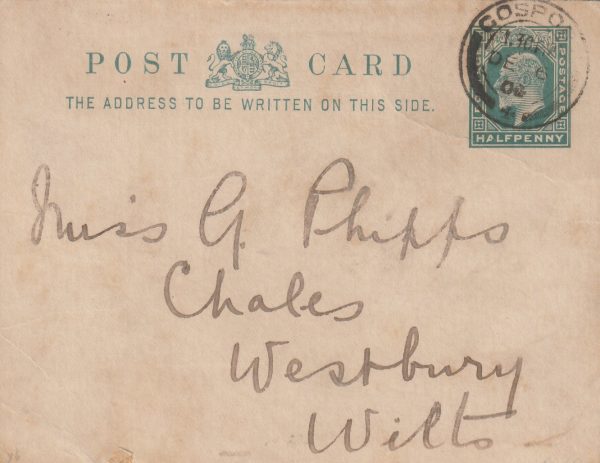 POST CARD
THE ADDRESS TO BE WRITTEN ON THIS SIDE.
GOSPO
DE 6
POSTAGE
HALFPENNY
Miss G. Phipps
Chales
Westbury
Wilts